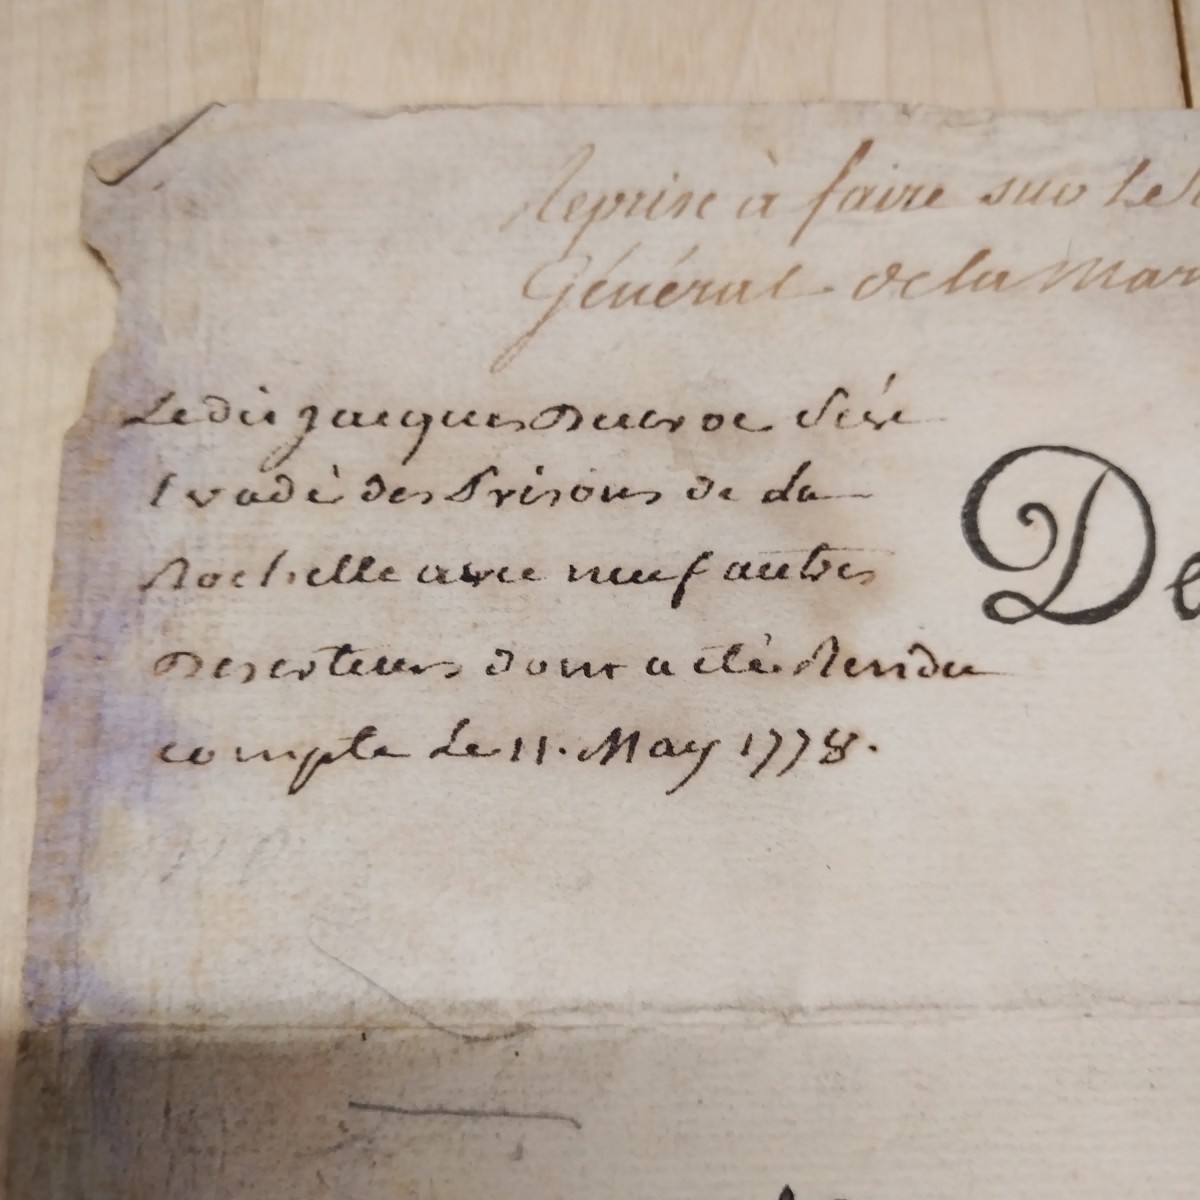 Reprise à faire sur le
Général de la Mar
Ledit jacques s'est
Evadé des Prisons de La
Rochelle avec neuf autres
Deserteurs dont a eté Rendu
compte Le 11. May 1778.
De